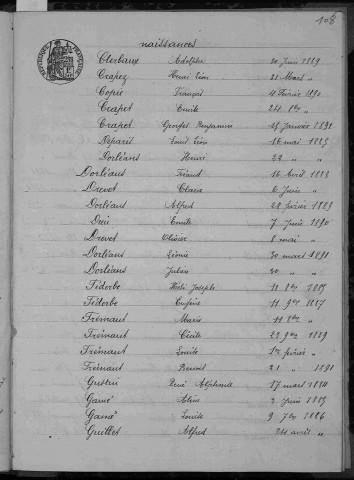 108
naissances
Clerbaux Adolphe 20 Juin 1889
Crapez Henri Léon 21 Mars "
Copie François 4 Février 1890
Crapet Emile 24 8bre "
Crapet Georges Benjamin 25 Janvier 1891
Deparis Louis Léon 16 mai 1883
Dorléans Henri 22 " "
Dorléans 16 Avril 1883
Drevet Clara 6 Juin "
Dorléans Alfred 28 février 1889
Emile 7 Juin 1890
Drevet Olivier 8 mai "
Dorléans Léonie 30 mars 1891
Dorléans Julia 30 " "
Fidorbe Joseph 11 8bre 1885
Fidorbe Eugène 11 9bre 1887
Frémaut Marie 11 8bre "
Frémaut Cécile 22 9bre 1889
Frémaut Louise 1er février "
Frémaut Benoit 21 " 1891
René Alphonse 17 mars 1884
Gamé 2 Juin 1885
Gamé Louise 9 7bre 1886
Guillet Alfred 24 avril "